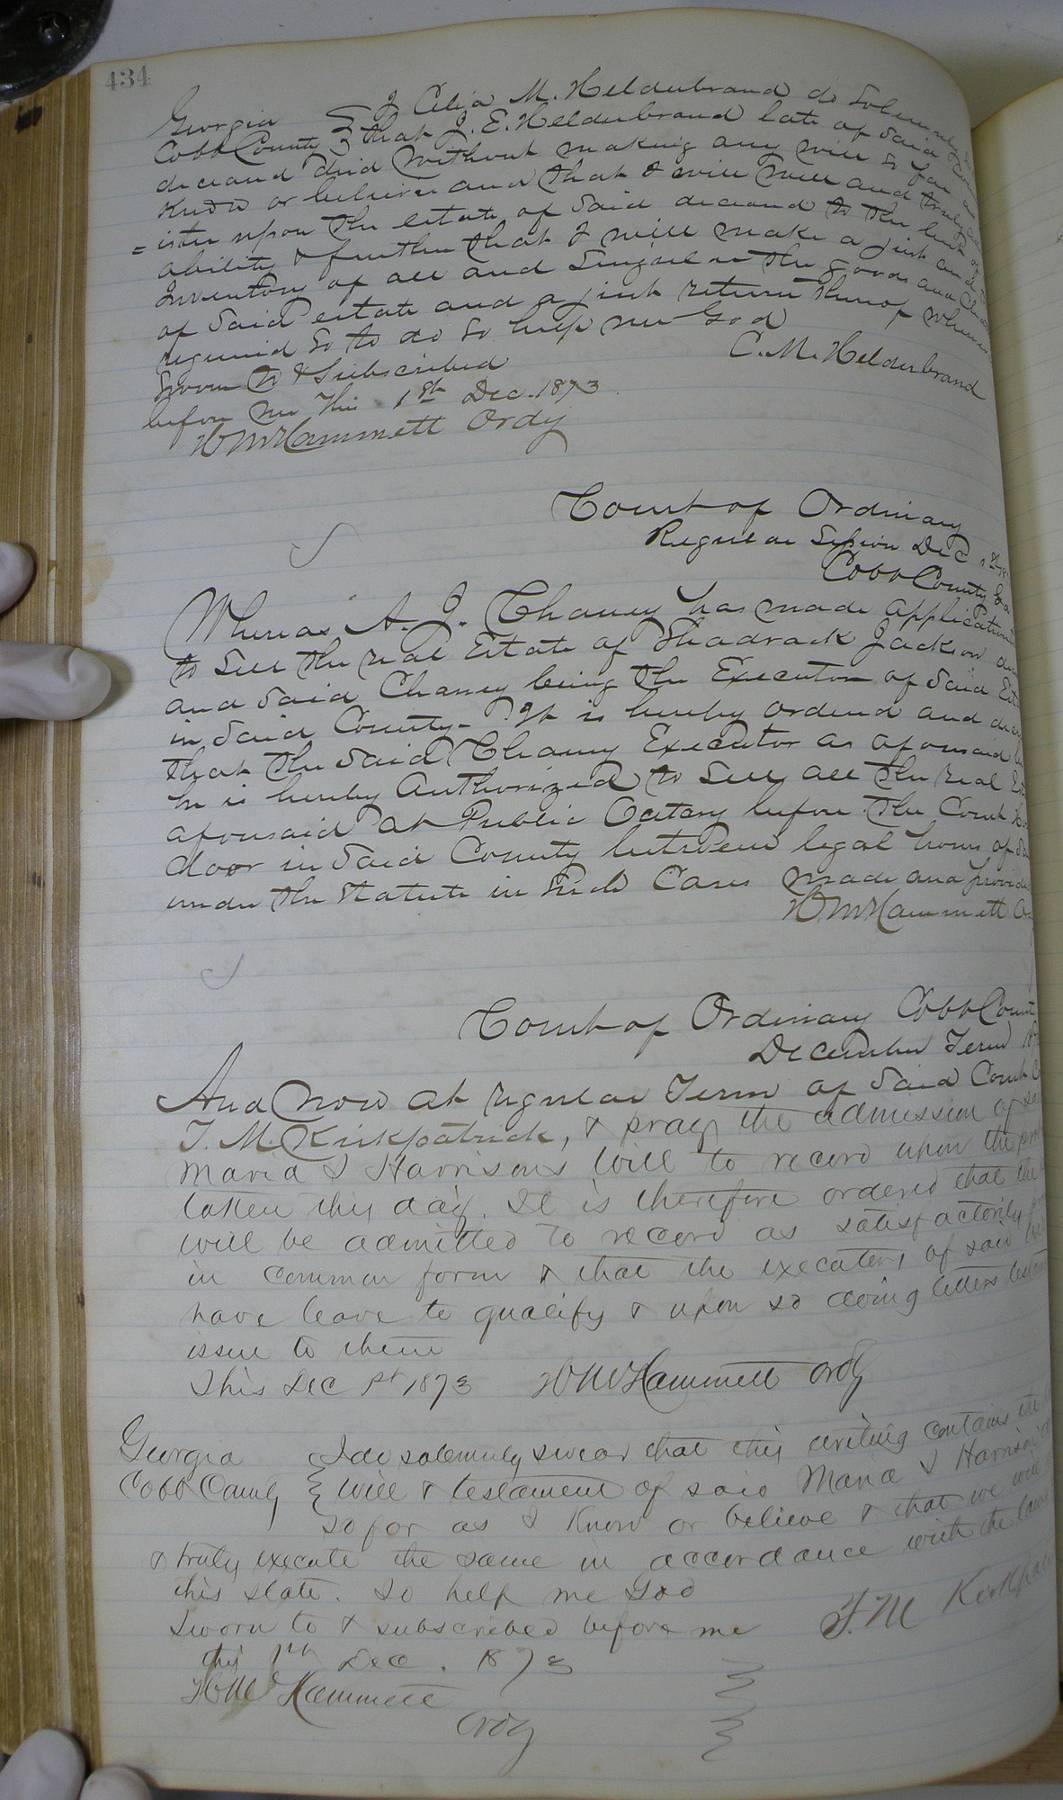 434
Georgia } I Celia M. Helderbrand do Solemnly
Cobb County } that J. E. Helderbrand late of Said
deceased died without making any will so far as
Know or believe and that I will well and truly
=ister upon the estate of Said deceased to the best of
ability & further that I will make a just and
Inventory of all and Singular the goods and
of Said estate and a just return thereof when
required So to do So help me God
C. M. Helderbrand
Sworn to & Subscribed
before me This 1st Dec. 1873
W M Hammett Ordy
Court of Ordinary
Regular Session Dec 1st
Cobb County Ga
Whereas A. J. Chaney has made application
to Sell the real Estate of Shadrack Jackson
and Said Chaney being the Executor of Said
in Said County - It is hereby ordered and
that the Said Chaney Executor as aforesaid
he is hereby Authorized to Sell all the real
aforesaid at Public Outary before the Court
door in Said County between legal hours of
under the Statute in Such Cases made and provide
W M Hammett
Court of Ordinary Cobb County
December Term
And now at regular Term of Said Court
T. M. Kirkpatrick, & prays the admission of
Maria I Harrisons Will to record upon the
taken this day. It is therefore ordered that the
will be admitted to record as satisfactorily
in common form & that the executors of said
have leave to qualify & upon so doing letters
issue to them
This Dec 1st 1873 W M Hammett Ordy
Georgia } I do solemnly swear that this writing contains the
Cobb County } will & testament of said Maria I Harrison
so far as I Know or believe & that we will
& truly execute the same in accordance with the laws
this state. So help me God
Sworn to & subscribed before me T. M
this 1st Dec. 1873
W M Hammett
Ordy